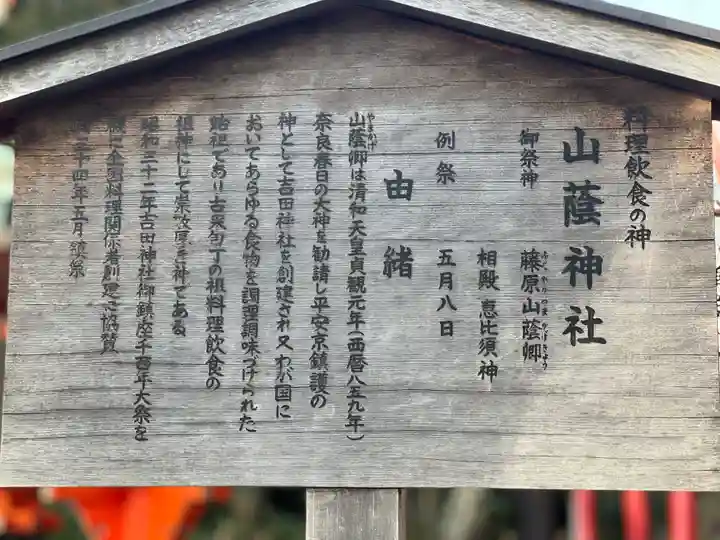 料理飲食の神
山蔭神社
御祭神 藤原山蔭卿
相殿 恵比須神
例祭 五月八日
由緒
山蔭卿は清和天皇貞観元年(西暦八五九年)
やまかげ
奈良春日の大神を勧請し平安京鎮護の
神として吉田神社を創建され又わが国に
おいてあらゆる食物を調理調味づけられた
始祖であり古来包丁の祖料理飲食の
祖神にして崇敬厚き神である
昭和三十二年吉田神社御鎮座千百年大祭を
全国料理関係者創建に協賛
十四年五月鎮祭